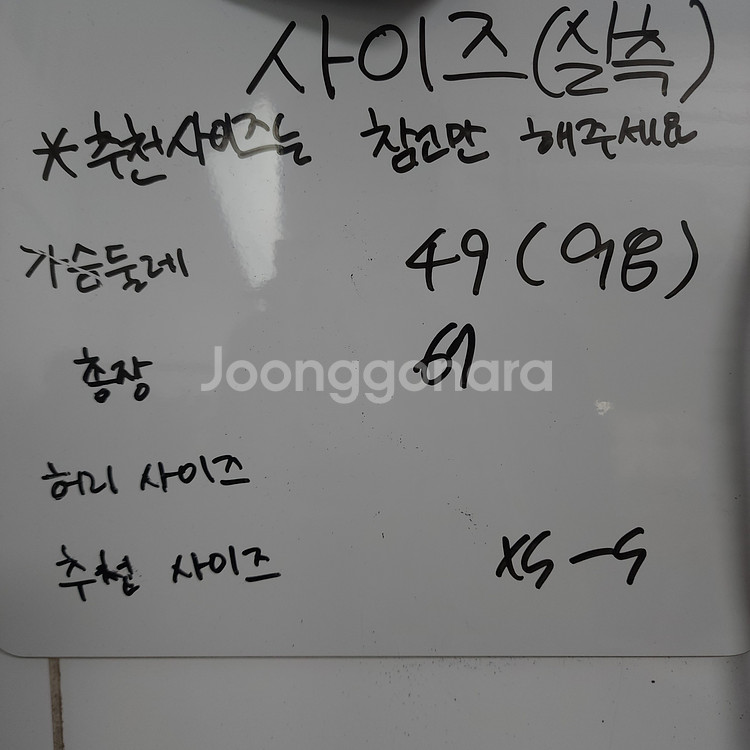 사이즈(실측)
*추천사이즈는 참고만 해주세요
가슴둘레 49(98)
총장 67
Joonggonara
허리 사이즈
추천 사이즈 XS-S